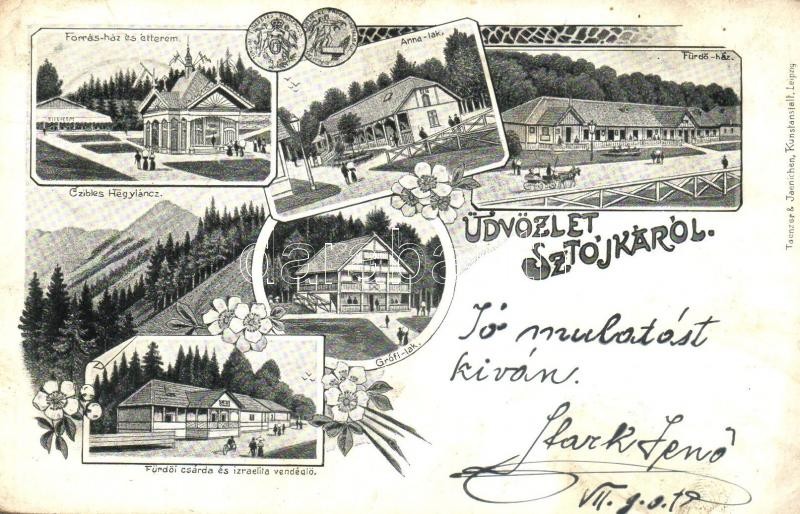 Forrás-ház és étterem.
Anna-lak.
Fürdő-ház.
ÉTTEREM
Czibles Hegyláncz.
ÜDVÖZLET
SZTOJKÁRÓL.
Grófi-lak.
Fürdői csárda és izraelita vendéglő.
Taenzer & Jaenichen, Kunstanstalt, Leipzig
Jó mulatást
kiván.
Stark Jenő
VII.
darabanth